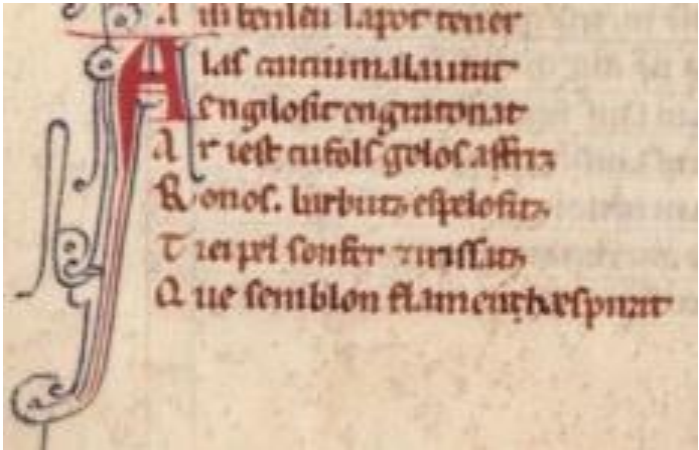 A m benleu la por tener
A las caitiu malaurat
E ngilosit engratonat
A r iest tu fols gelos affriz
R onos. barbutz espelofitz
T iei pel son fer ⁊ irissatz
Q ue semblon flamencha espinat